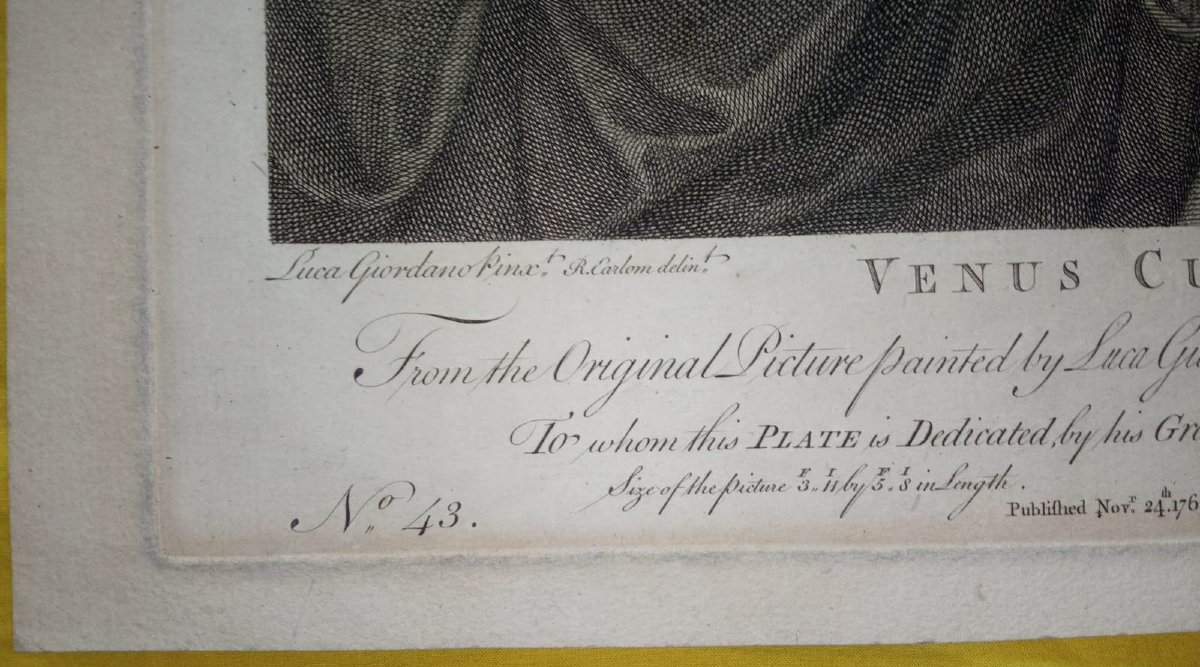 Luca Giordano Pinx.t R. Earlom delin.t
VENUS CU
From the Original Picture painted by Luca Gi
To whom this PLATE is Dedicated, by his Gre
Size of the picture 3F.. 11I by 5F.. 8I in Length.
No. 43.
Publiſhed Nov.r 24th. 176